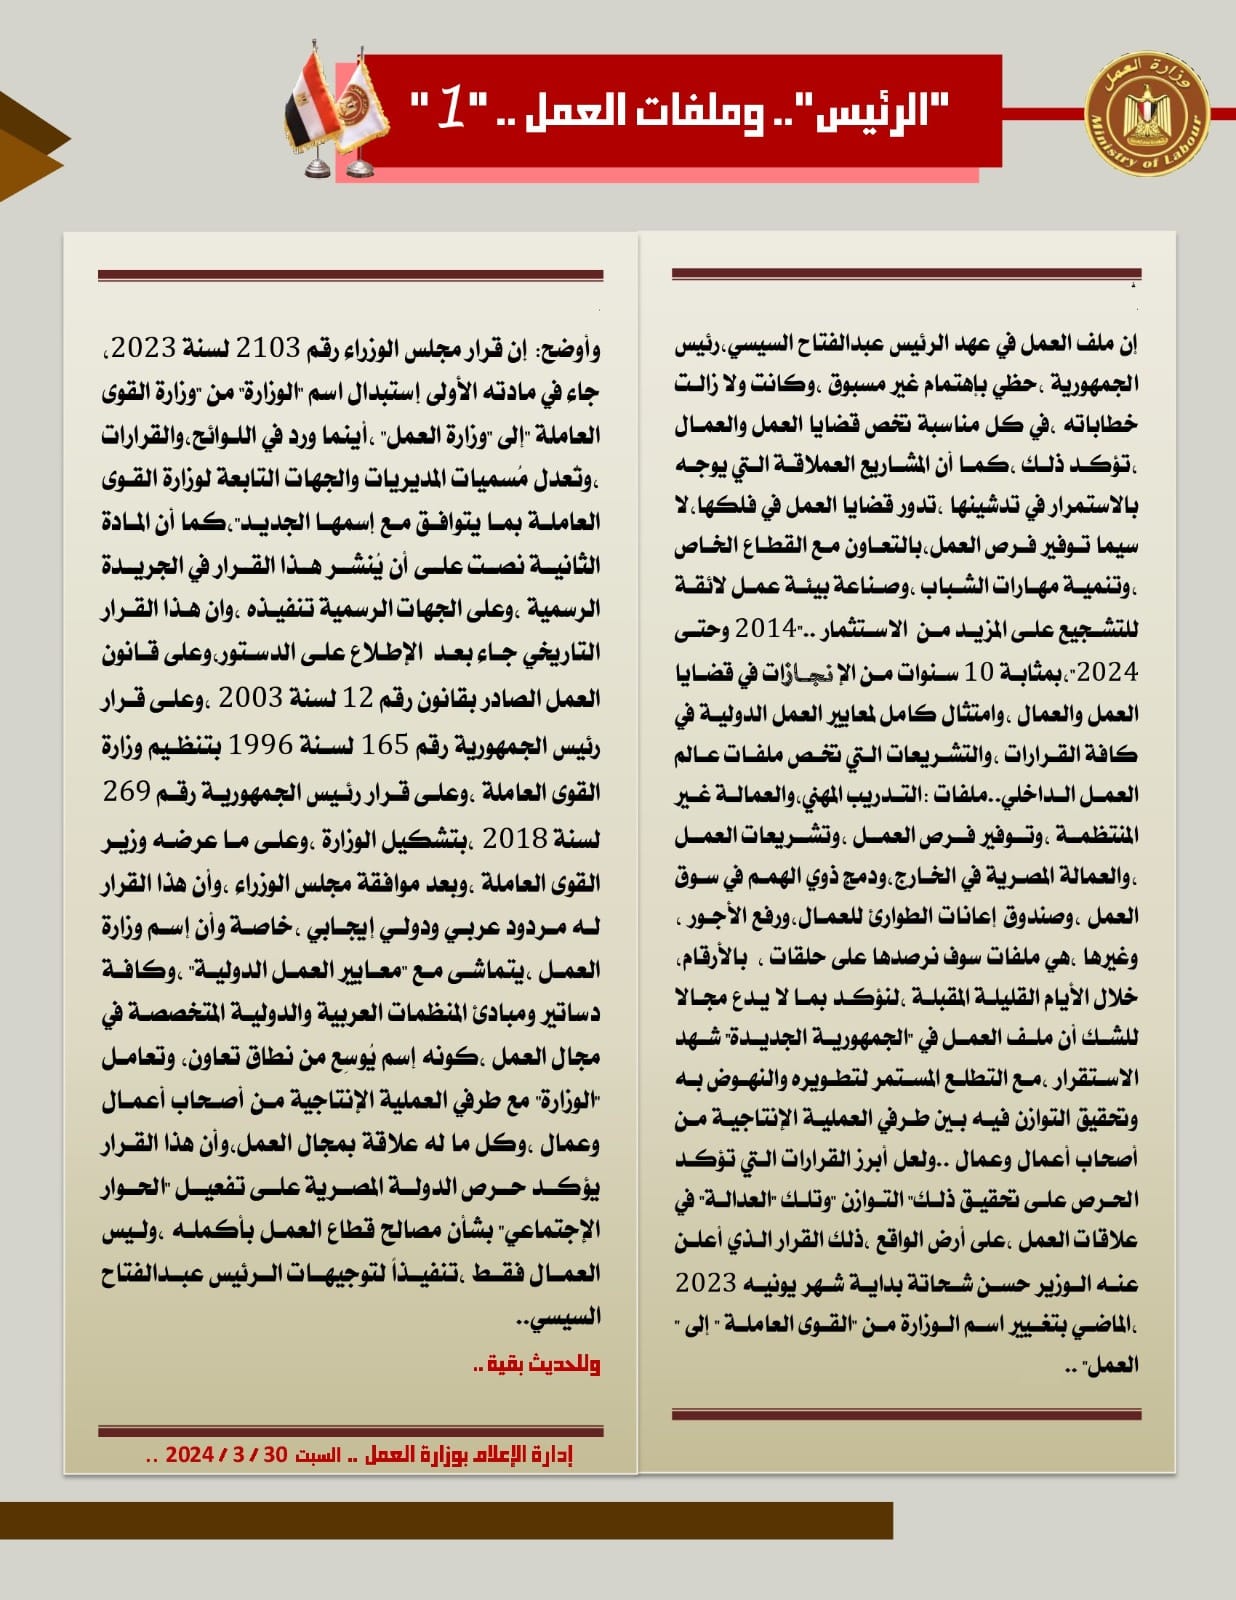 "الرئيس".. وملفات العمل .. "1"
وزارة العمل
Ministry of Labour
إن ملف العمل في عهد الرئيس عبدالفتاح السيسي،رئيس
الجمهورية ،حظي بإهتمام غير مسبوق ،وكانت ولا زالت
خطاباته ،في كل مناسبة تخص قضايا العمل والعمال
،تؤكد ذلك ،كما أن المشاريع العملاقة التي يوجه
بالاستمرار في تدشينها ،تدور قضايا العمل في فلكها،لا
سيما توفير فرص العمل،بالتعاون مع القطاع الخاص
،وتنمية مهارات الشباب ،وصناعة بيئة عمل لائقة
للتشجيع على المزيد من الاستثمار .."2014 وحتى
2024"،بمثابة 10 سنوات من الإنجازات في قضايا
العمل والعمال ،وامتثال كامل لمعايير العمل الدولية في
كافة القرارات ،والتشريعات التي تخص ملفات عالم
العمل الداخلي..ملفات :التدريب المهني،والعمالة غير
المنتظمة ،وتوفير فرص العمل ،وتشريعات العمل
،والعمالة المصرية في الخارج،ودمج ذوي الهمم في سوق
العمل ،وصندوق إعانات الطوارئ للعمال،ورفع الأجور ،
وغيرها ،هي ملفات سوف نرصدها على حلقات ، بالأرقام،
خلال الأيام القليلة المقبلة ،لنؤكد بما لا يدع مجالا
للشك أن ملف العمل في "الجمهورية الجديدة" شهد
الاستقرار ،مع التطلع المستمر لتطويره والنهوض به
وتحقيق التوازن فيه بين طرفي العملية الإنتاجية من
أصحاب أعمال وعمال ..ولعل أبرز القرارات التي تؤكد
الحرص على تحقيق ذلك" التوازن "وتلك "العدالة" في
علاقات العمل ،على أرض الواقع ،ذلك القرار الذي أعلن
عنه الوزير حسن شحاتة بداية شهر يونيه 2023
،الماضي بتغيير اسم الوزارة من "القوى العاملة " إلى "
العمل" ..
وأوضح: إن قرار مجلس الوزراء رقم 2103 لسنة 2023،
جاء في مادته الأولى إستبدال اسم "الوزارة" من "وزارة القوى
العاملة "إلى "وزارة العمل" ،أينما ورد في اللوائح،والقرارات
،وتُعدل مُسميات المديريات والجهات التابعة لوزارة القوى
العاملة بما يتوافق مع إسمها الجديد"،كما أن المادة
الثانية نصت على أن يُنشر هذا القرار في الجريدة
الرسمية ،وعلى الجهات الرسمية تنفيذه ،وان هذا القرار
التاريخي جاء بعد الإطلاع على الدستور،وعلى قانون
العمل الصادر بقانون رقم 12 لسنة 2003 ،وعلى قرار
رئيس الجمهورية رقم 165 لسنة 1996 بتنظيم وزارة
القوى العاملة ،وعلى قرار رئيس الجمهورية رقم 269
لسنة 2018 ،بتشكيل الوزارة ،وعلى ما عرضه وزير
القوى العاملة ،وبعد موافقة مجلس الوزراء ،وأن هذا القرار
له مردود عربي ودولي إيجابي ،خاصة وأن إسم وزارة
العمل ،يتماشى مع "معايير العمل الدولية" ،وكافة
دساتير ومبادئ المنظمات العربية والدولية المتخصصة في
مجال العمل ،كونه إسم يُوسِع من نطاق تعاون، وتعامل
"الوزارة" مع طرفي العملية الإنتاجية من أصحاب أعمال
وعمال ،وكل ما له علاقة بمجال العمل،وأن هذا القرار
يؤكد حرص الدولة المصرية على تفعيل "الحوار
الإجتماعي" بشأن مصالح قطاع العمل بأكمله ،وليس
العمال فقط ،تنفيذاً لتوجيهات الرئيس عبدالفتاح
السيسي..
وللحديث بقية ..
إدارة الإعلام بوزارة العمل .. السبت 30 / 3 / 2024 ..